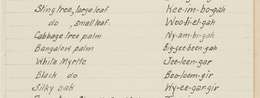 Sting tree, large leaf Kee-im-bo-gah
do , small leaf. Woo-d-el-gah
Cabbage tree palm Ny-am-bi-gah
Bangalow palm big-see-been-gah
White Myrtle Jee-leen-gar
Black do Boo-loom-gir
Silky oak Wy-ee-gar-gir